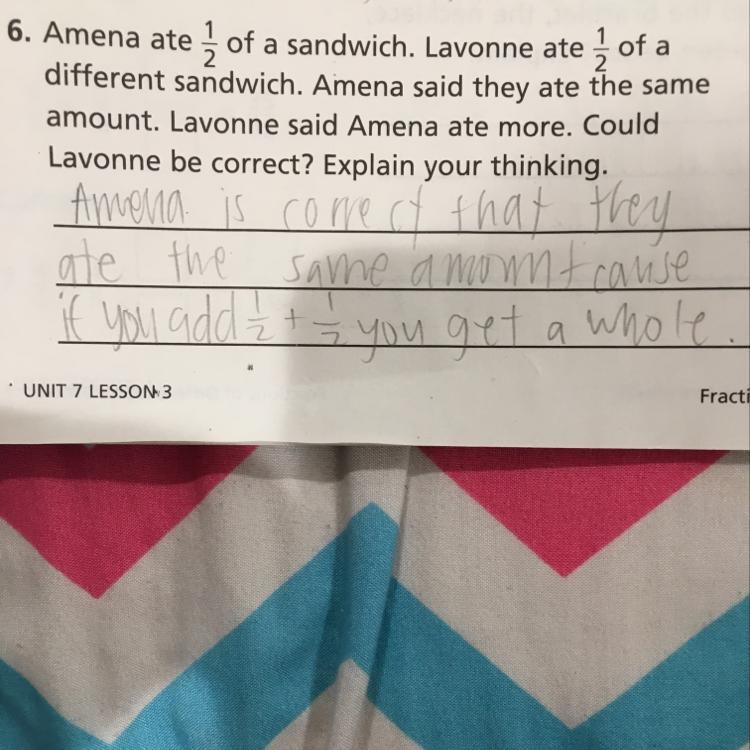 6. Amena ate 1/2 of a sandwich. Lavonne ate 1/2 of a
different sandwich. Amena said they ate the same
amount. Lavonne said Amena ate more. Could
Lavonne be correct? Explain your thinking.
Amena is correct that they
ate the same amount cause
if you add 1/2 + 1/2 you get a whole.
UNIT 7 LESSON 3
Fracti